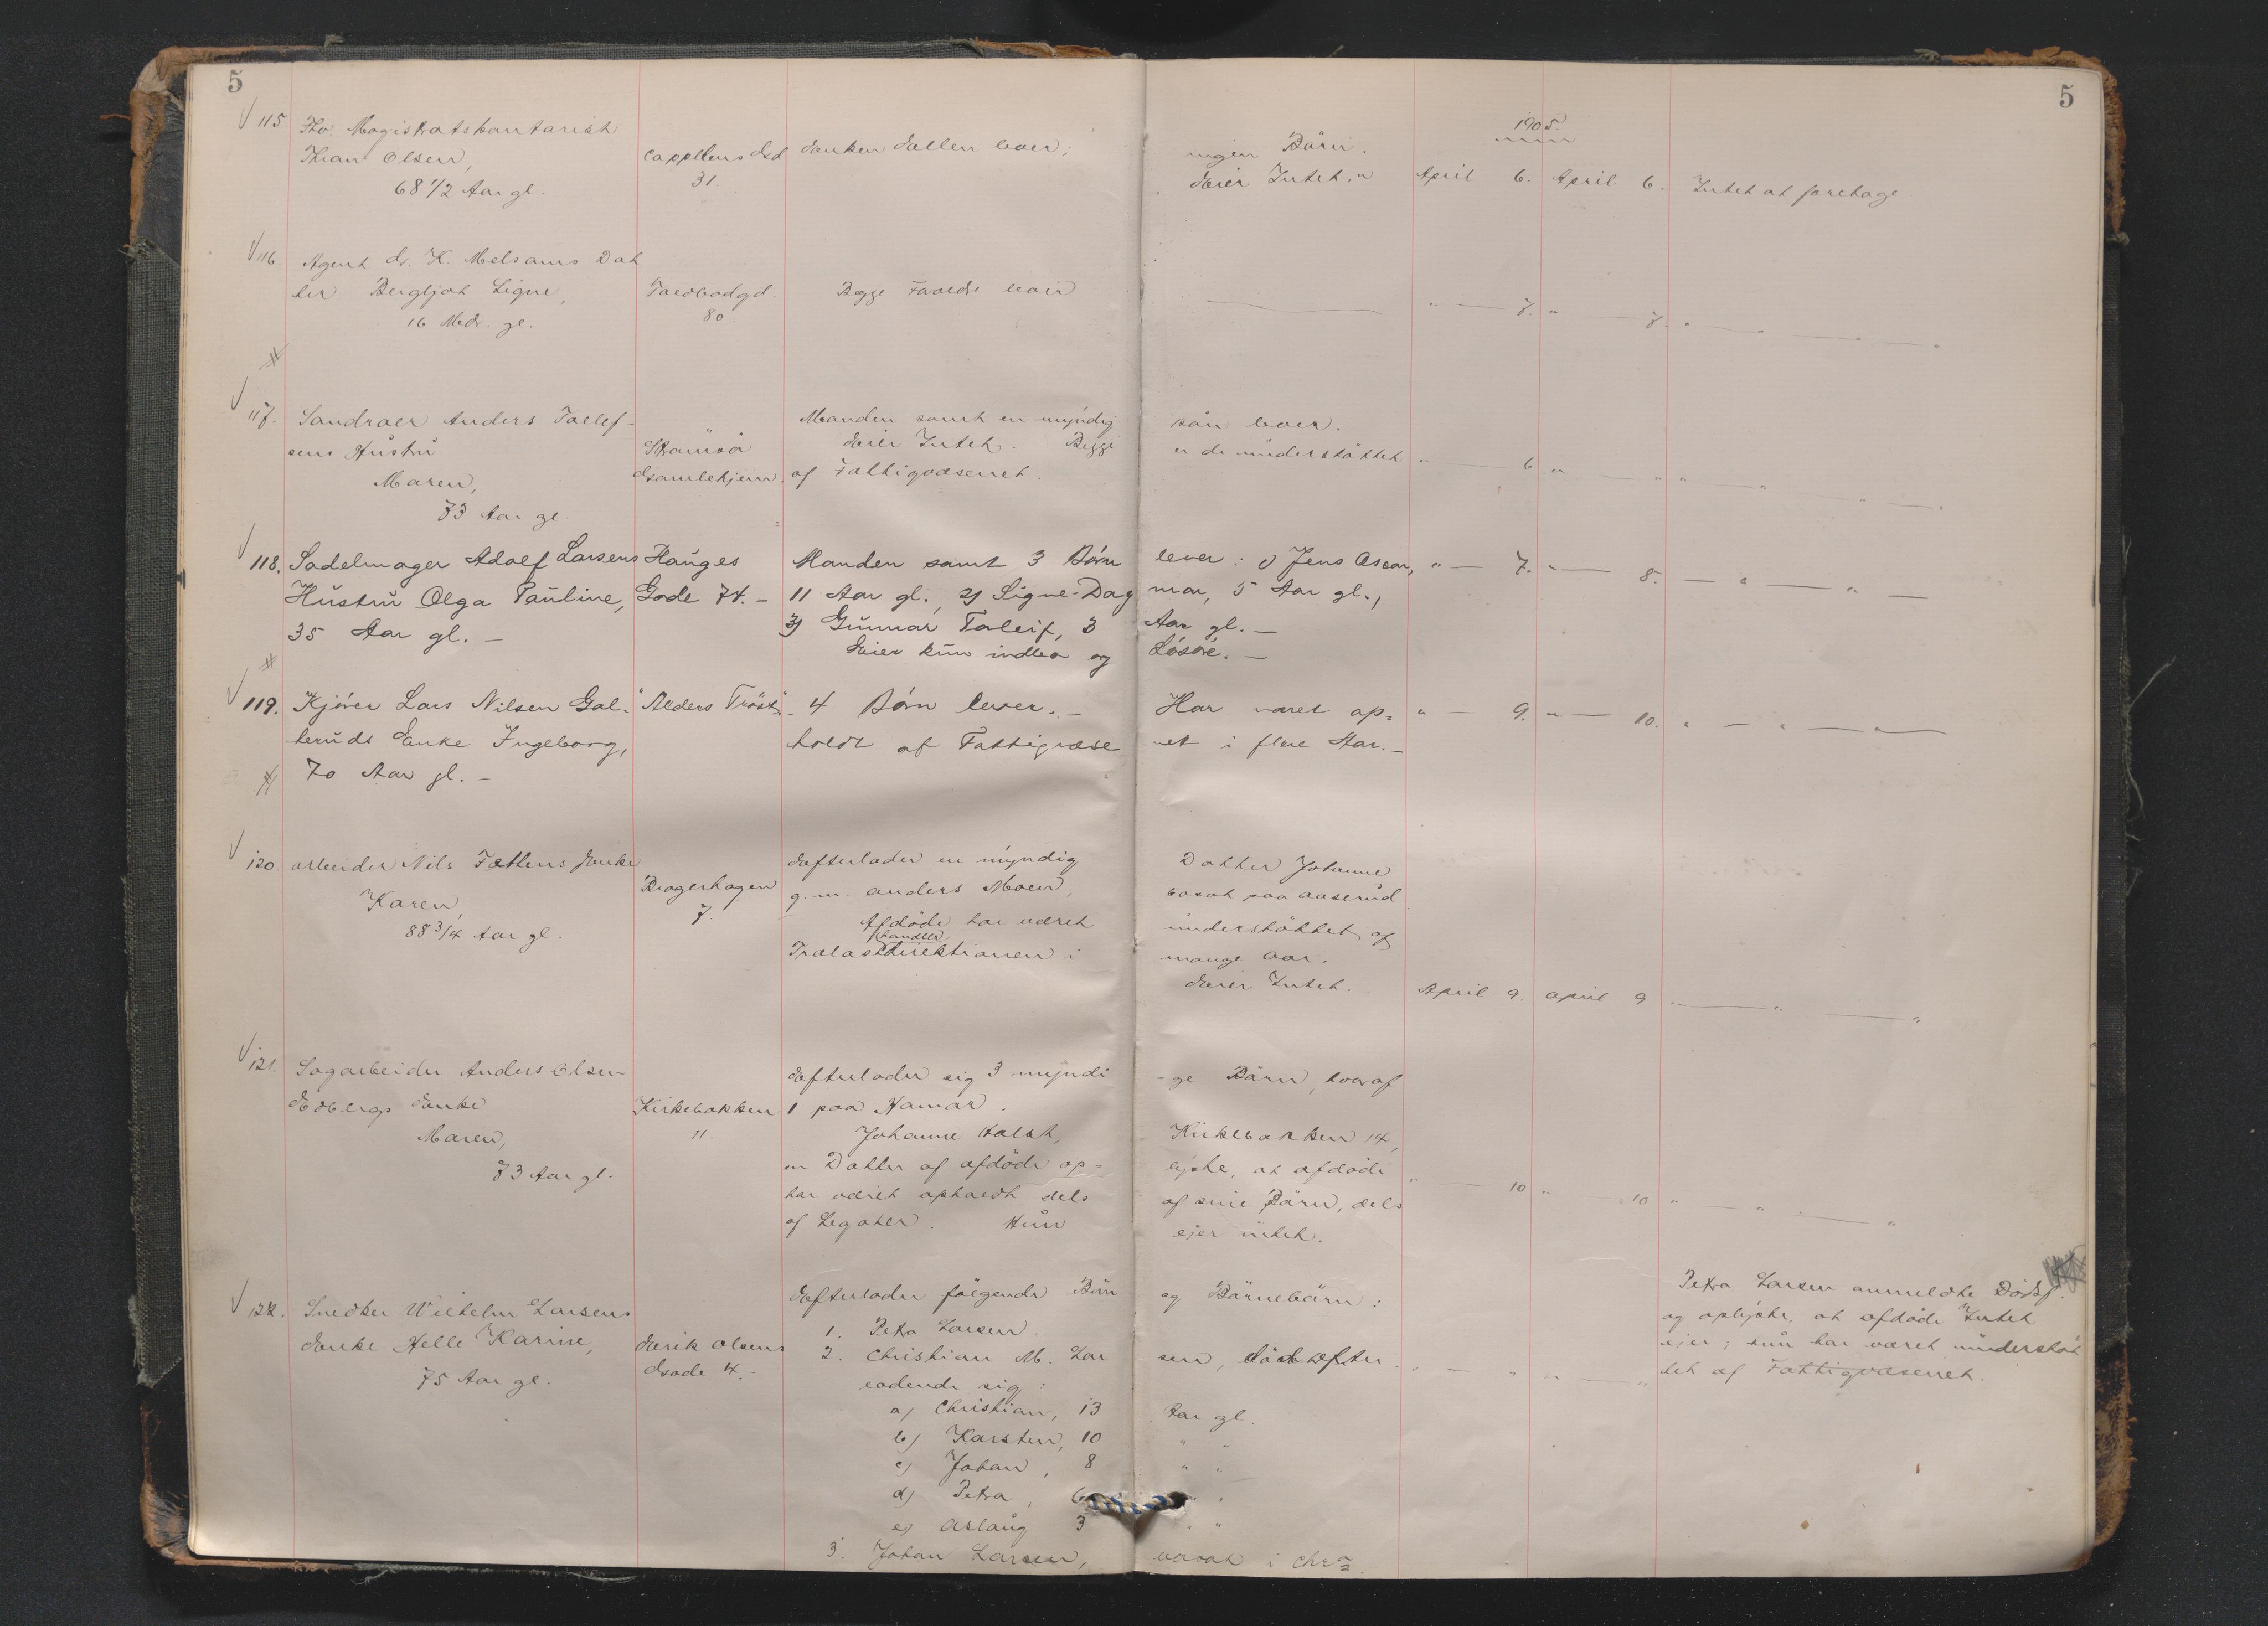 5
5
1905.
115 Fho. Magistratskontorist
Thran Olsen,
68 1/2 Aar gl.
Cappelens Gd
31
Enken Ellen lever;
ingen Børn.
Eier Intet."
April 6. April 6. Intet at foretage
116 Agent G. K. Melsoms Dat
ter Bergljot Signe,
16 Mdr. gl.
Toldbodgd.
80
Begge Forældre lever
" — 7. " — 7. " — " — " — "
117. Anders Tollef-
sens Hustru
Maren,
73 Aar gl
Strømsø
Gamlehjem.
Manden samt en myndig søn lever.
Eier Intet. Begge er de understøttet
af Fattigvæsenet.
" — 6 " — " " — " — " — "
118. Sadelmager Adolf Larsens
Hustru Olga Pauline,
35 Aar gl. —
Hauges
Gade 74. —
Manden samt 3 Børn lever: 1) Jens Oscar,
11 Aar gl., 2) Signe-Dagmar, 5 Aar gl.,
3) Gunnar Toleif, 3 Aar gl. —
Eier kun indbo og Løsøre. —
" — 7. " — 8. — " — " —
119. Kjører Lars Nilsen Gal-
teruds Enke Ingeborg,
70 Aar gl. —
"Alders Trøst"
4 Børn lever. — Har været op=
holdt af Fattigvæsenet i flere Aar. —
" — 9. " — 10. " — " — " —
120 arbeider Nils Tættens Enke
Karen,
88 3/4 Aar gl.
Bragerhagen
7.
Efterlader en myndig Datter Johanne
g. m. anders Moen, bosat paa Aaserud
Afdøde har været understøttet af
handler
Trælastdirektionen i mange Aar.
Eier Intet.
April 9. april 9 " — " — "
121. Sagarbeider Anders Olsen
Edbergs Enke
Maren,
73 Aar gl.
Kirkebakken
11.
Efterlader sig 3 myndi-ge Børn, hvoraf
1 paa Hamar.
Johanne Holst, Kirkebakken 14,
en Datter af afdøde op=lyste, at afdøde
har været opholdt dels af sine Børn, dels
af Legater. Hun ejer intet.
" — 10 " — 10 " — " — "
122. Snedker Wilhelm Larsens
Enke Helle Karine,
75 Aar gl.
Erik Olsens
Gade 4. —
Efterlader følgende Børn og Børnebørn:
1. Petra Larsen.
2. Christian M. Larsen, død efter
ladende sig:
a) Christian, 13 Aar gl.
b) Karsten, 10 " "
c) Johan, 8 " "
d) Petra, 6 " "
e) Aslaug 3 " "
3. Johan Larsen, bosat i Chra.
" — " " — "
Petra Larsen anmeldte Dødsf.
og oplyste, at afdøde Intet
ejer; hun har været understøt
tet af Fattigvæsenet.